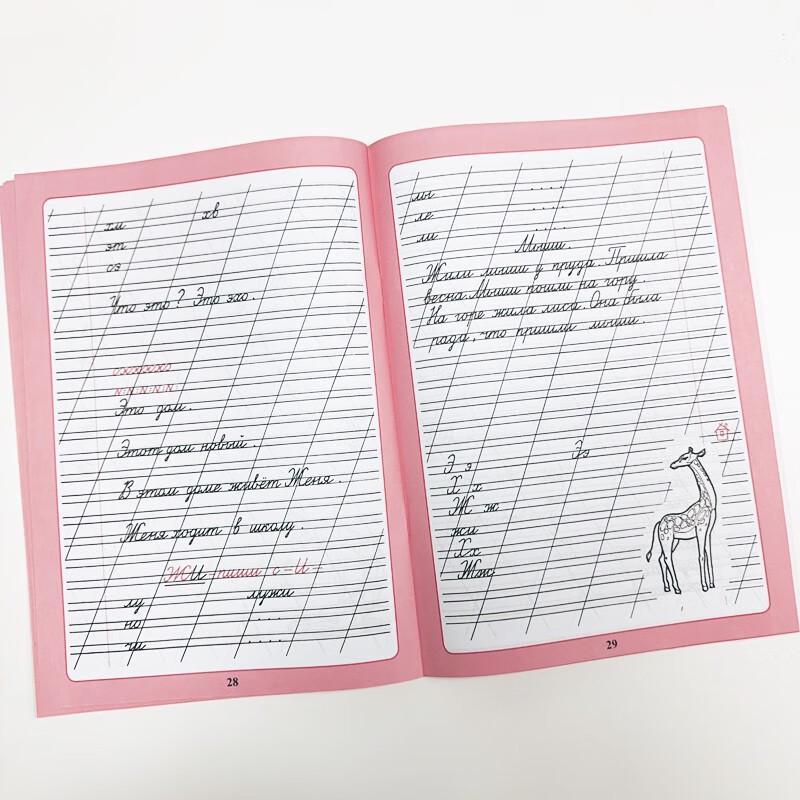 хи хв
эт
сэ
Что это? Это эхо.
Это дом.
Этот дом новый.
В этом доме живёт Женя.
Женя ходит в школу.
ЖИ - пиши с - И -
лу лужи
но ....
чи ....
28
мы ....
ле ....
ли ....
Мыши.
Жили мыши у пруда. Пришла
весна. Мыши пошли на гору.
На горе жила лиса. Она была
рада, что пришли мыши.
Э э Ээ
Х х
Ж ж
жи
Хх
Жж
29